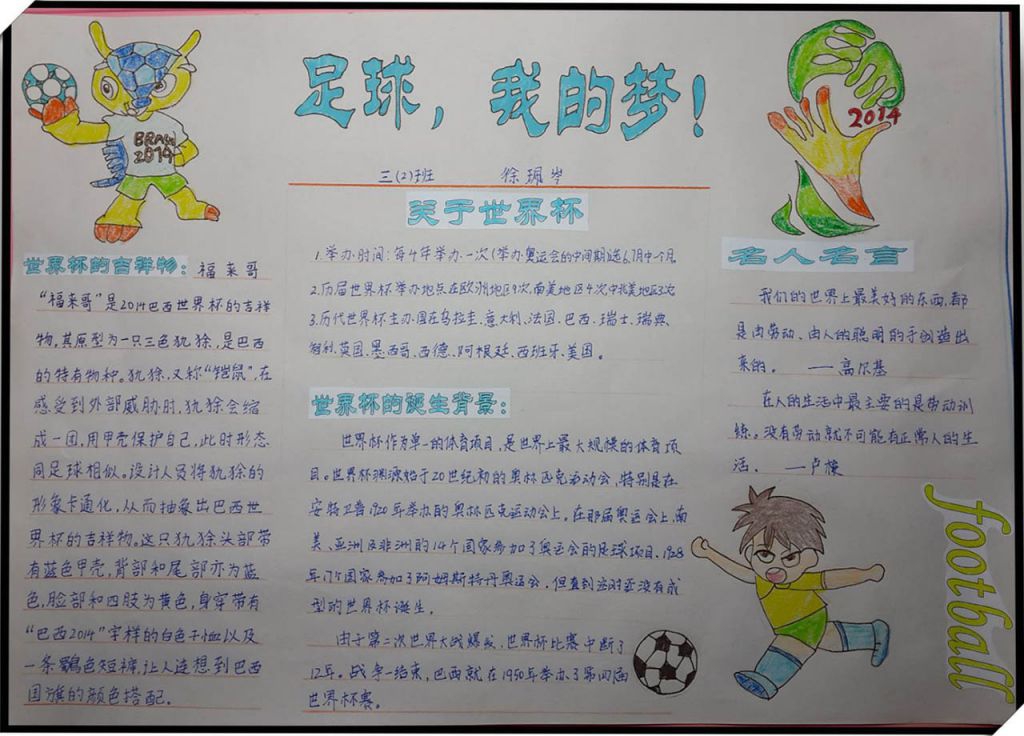 足球，我的梦！
三(2)班 徐珮岑
BRASIL
2014
2014
世界杯的吉祥物：福来哥
“福来哥”是2014巴西世界杯的吉祥
物，其原型为一只三色犰狳，是巴西
的特有物种。犰狳，又称“铠鼠”，在
感受到外部威胁时，犰狳会缩
成一团，用甲壳保护自己，此时形态
同足球相似。设计人员将犰狳的
形象卡通化，从而抽象出巴西世
界杯的吉祥物。这只犰狳头部带
有蓝色甲壳，背部和尾部亦为蓝
色，脸部和四肢为黄色，身穿带有
“巴西2014”字样的白色T恤以及
一条色短裤，让人连想到巴西
国旗的颜色搭配。
关于世界杯
1.举办时间：每4年举办一次(举办奥运会的中间期)选6.7月中一个月
2.历届世界杯举办地点在欧洲地区9次，南美地区4次，中北美地区3次
3.历代世界杯主办国在乌拉圭、意大利、法国、巴西、瑞士、瑞典、
智利、英国、墨西哥、西德、阿根廷、西班牙、美国。
世界杯的诞生背景：
世界杯作为单一的体育项目，是世界上最大规模的体育项
目。世界杯渊源始于20世纪初的奥林匹克运动会，特别是在
安特卫普1920年举办的奥林匹克运动会上。在那届奥运会上，南
美、亚洲及非洲的14个国家参加了奥运会的足球项目，1928
年17个国家参加了阿姆斯特丹奥运会，但直到这时还没有成
型的世界杯诞生。
由于第二次世界大战爆发，世界杯比赛中断了
12年。战争一结束，巴西就在1950年举办了第四届
世界杯赛。
名人名言
我们的世界上最美好的东西，都
是由劳动、由人的聪明的手创造出
来的。 ——高尔基
在人的生活中最主要的是劳动训
练。没有劳动就不可能有正常人的生
活。 ——卢梭
football